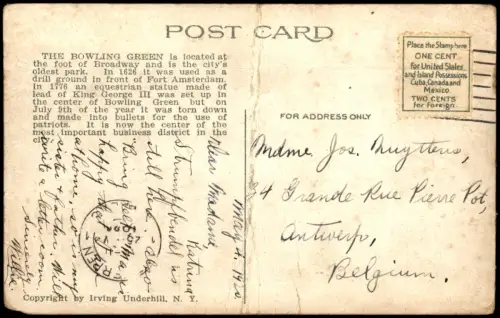 POST CARD
THE BOWLING GREEN is located at
the foot of Broadway and is the city's
oldest park. In 1626 it was used as a
drill ground in front of Fort Amsterdam.
In 1776 an equestrian statue made of
lead of King George III was set up in
the center of Bowling Green but on
July 9th of the year it was torn down
and made into bullets for the use of
patriots. It is now the center of the
most important business district in the
city.
Place the Stamp here
ONE CENT
for United States
and Island Possessions
Cuba, Canada and
Mexico
TWO CENTS
for Foreign
FOR ADDRESS ONLY
Mdme Jos. Nuyttens,
34 Grande Rue Pierre Pot,
Antwerp,
Belgium.
May 2, 1920
Dear Madame,
Katrina
is
still here. also
"Bring
happy
at home, so is my
sister & father. Will
write a letter soon.
Sincerely
Willie
Copyright by Irving Underhill, N. Y.